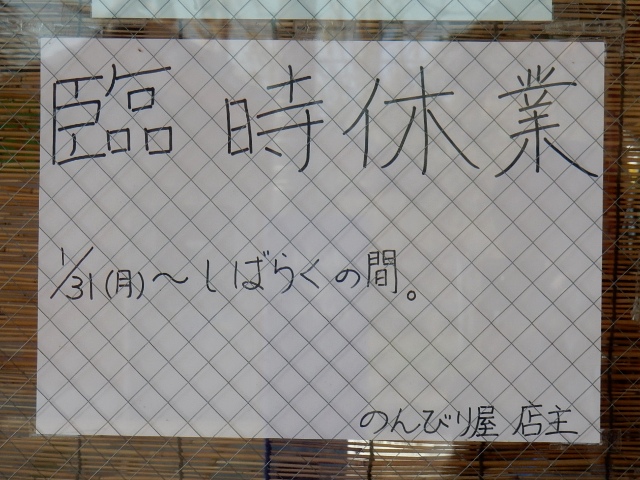 臨時休業
1/31(月)〜しばらくの間。
のんびり屋 店主